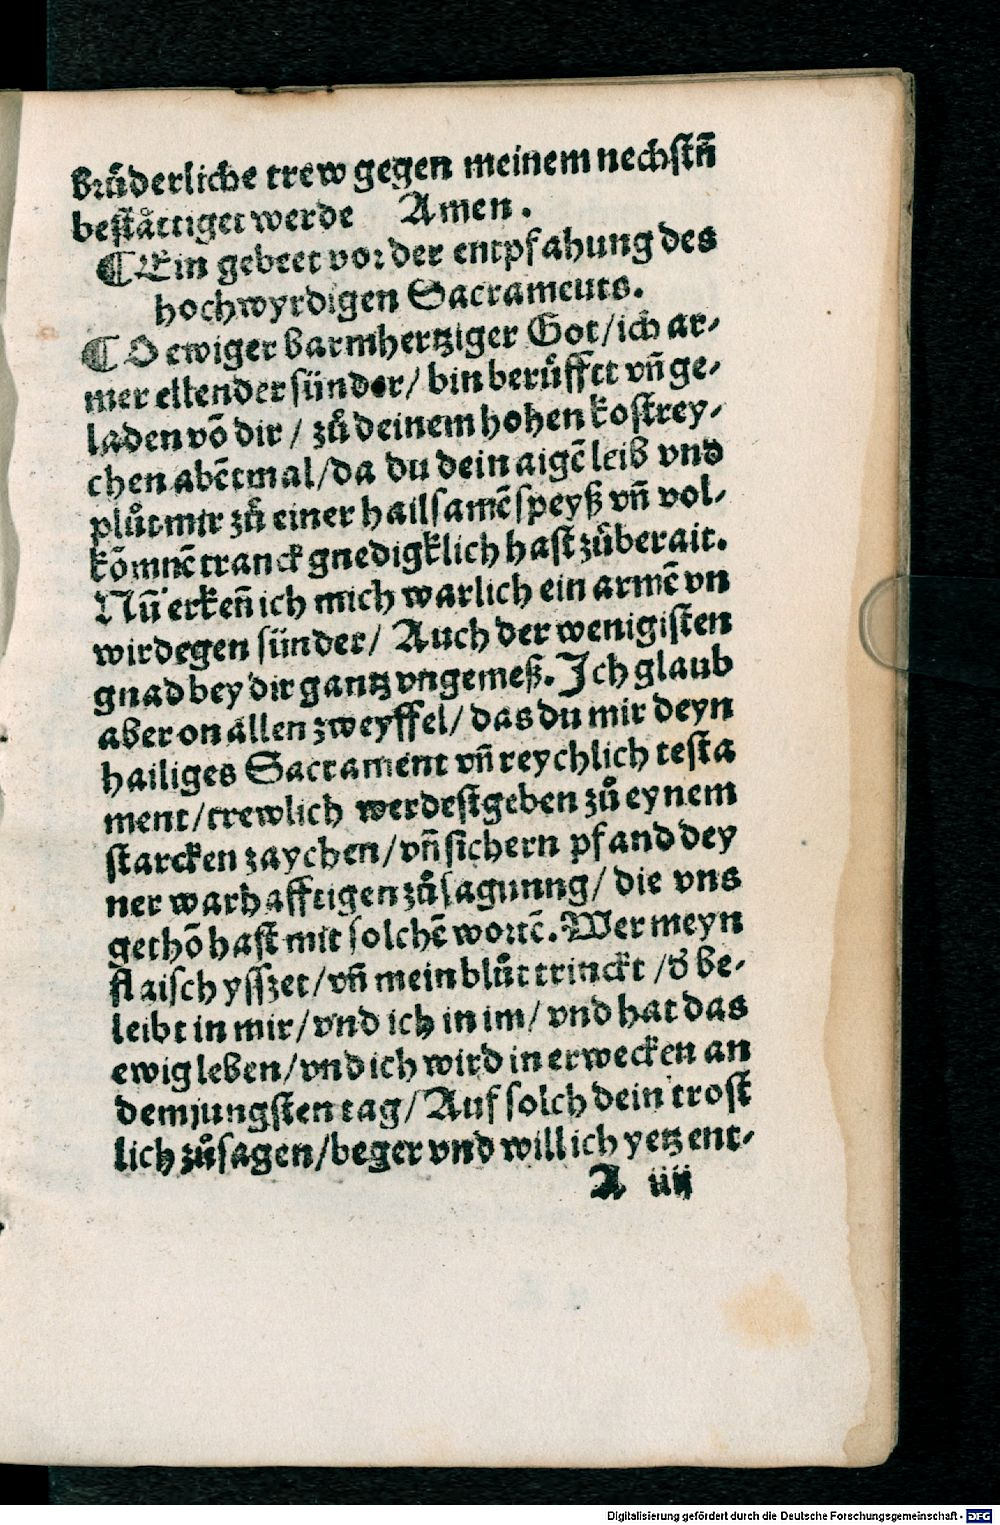 bruͤderliche trew gegen meinem nechstn̄
bestaͤttiget werde Amen.
¶ Ein gebeet vor der entpfahung des
hochwyrdigen Sacrameuts.
¶ O ewiger barmhertziger Got/ ich ar-
mer ellender sünder/ bin beruͤfftt vn̄ ge-
laden vō dir/ zuͦ deinem hohen kostrey-
chen abētmal/ da du dein aigē leib vnd
pluͦt mir zuͦ einer hailsamē speyß vn̄ vol-
kōmnē tranck gnedigklich hast zuͦberait.
Nū erken̄ ich mich warlich ein armē vn
wirdegen sünder/ Auch der wenigisten
gnad bey dir gantz vngemeß. Ich glaub
aber on allen zweyffel/ das du mir deyn
hailiges Sacrament vn̄ reychlich testa
ment/ trewlich werdest geben zuͦ eynem
starcken zaychen/ vn̄ sichern pfand dey
ner warhafftigen zuͦsagunng/ die vns
gethō hast mit solchē wortē. Wer meyn
flaisch ysszet/ vn̄ mein bluͦt trinckt/ d̄ be-
leibt in mir/ vnd ich in im/ vnd hat das
ewig leben/ vnd ich wird in erwecken an
dem jungsten tag/ Auf solch dein trost
lich zuͦsagen/ beger vnd will ich yetz ent-
A iiij
Digitalisierung gefördert durch die Deutsche Forschungsgemeinschaft - DFG